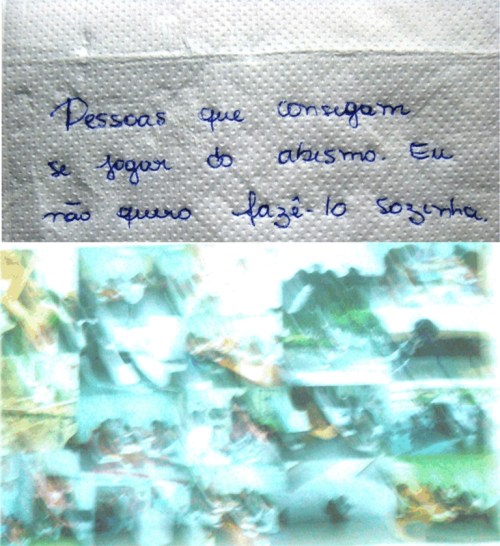 Pessoas que consigam
se jogar do abismo. Eu
não quero fazê-lo sozinha.